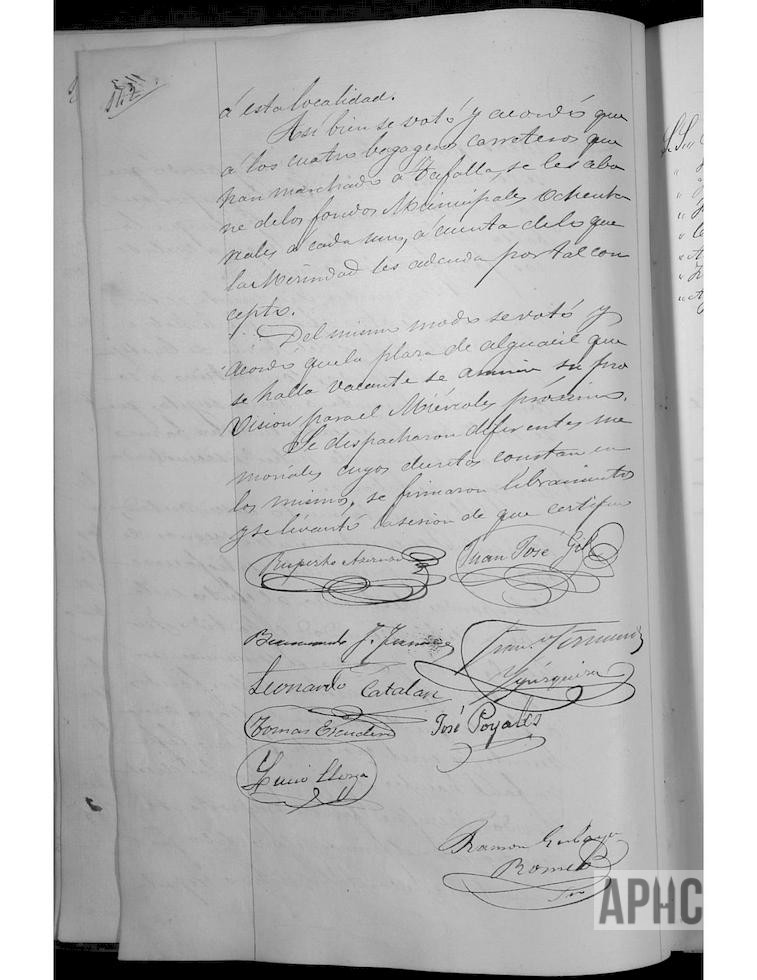 á esta localidad.
Así bien se votó y acordó que
á los cuatro bagageros carreteros que
han marchado á Tafalla, se les abo
ne de los fondos Municipales ochenta
reales á cada uno, á cuenta de lo que
la Merindad les adeuda por tal con
cepto.
Del mismo modo se votó y
acordó que la plaza de alguacil que
se halla vacante se anuncie su pro
vision para el Miércoles próximo.
Se despacharon diferentes me
moriales cuyos decretos constan en
los mismos, se firmaron libramientos
y se levantó la sesion de que certifico
Ruperto
Juan José Gil
J.
Leonardo Catalan
Tomas Escudero
José Poyales
Lucio
Ramon
Romeo
Srio
APHC